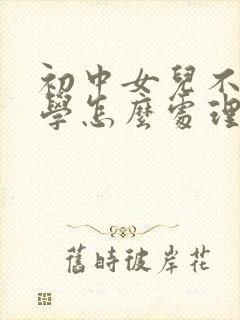 初中女兒不
學怎麼處理
舊時彼岸花